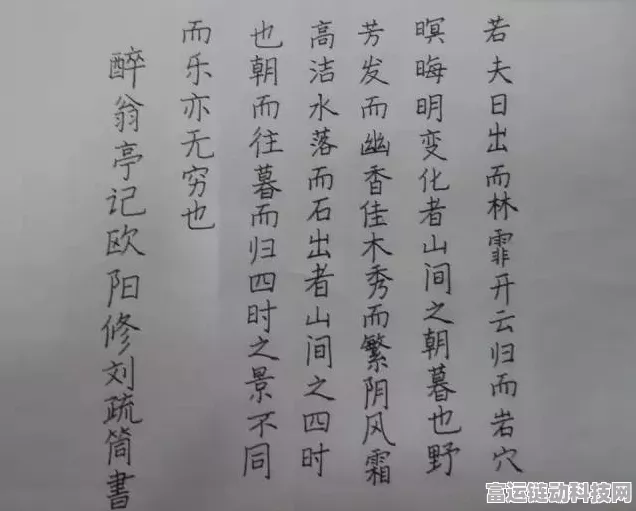 若夫日出而林霏开云归而岩穴
暝晦明变化者山间之朝暮也野
芳发而幽香佳木秀而繁阴风霜
高洁水落而石出者山间之四时
也朝而往暮而归四时之景不同
而乐亦无穷也
醉翁亭记欧阳修刘疏简書
富运链动科技网